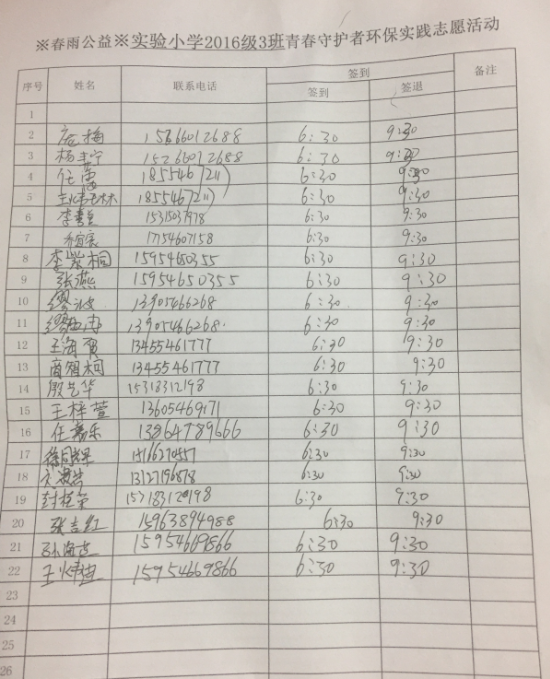 ※春雨公益※实验小学2016级3班青春守护者环保实践志愿活动
序号 姓名 联系电话 签到 备注
签到 签退
1
2 庞梅 15266012688 6:30 9:30
3 杨 宁 15266012688 6:30 9:30
4 任 18554672111 6:30 9:30
5 18554672111 6:30 9:30
6 李 6:30 9:30
7 17154607158 6:30 9:30
8 李 桐 15954650355 6:30 9:30
9 张燕 15954650355 6:30 9:30
10 缪波 13905466268 6:30 9:30
11 缪 13905466268 6:30 9:30
12 王海 13455461777 6:30 9:30
13 商 桐 13455461777 6:30 9:30
14 殷 华 15318312198 6:30 9:30
15 王梓萱 13605469171 6:30 9:30
16 任 乐 13864789666 6:30 9:30
17 徐 6:30 9:30
18 13127196878 6:30 9:30
19 6:30 9:30
20 张吉红 15963894988 6:30 9:30
21 孙海 15954669866 6:30 9:30
22 王炜 15954669866 6:30 9:30
23
24
25
26